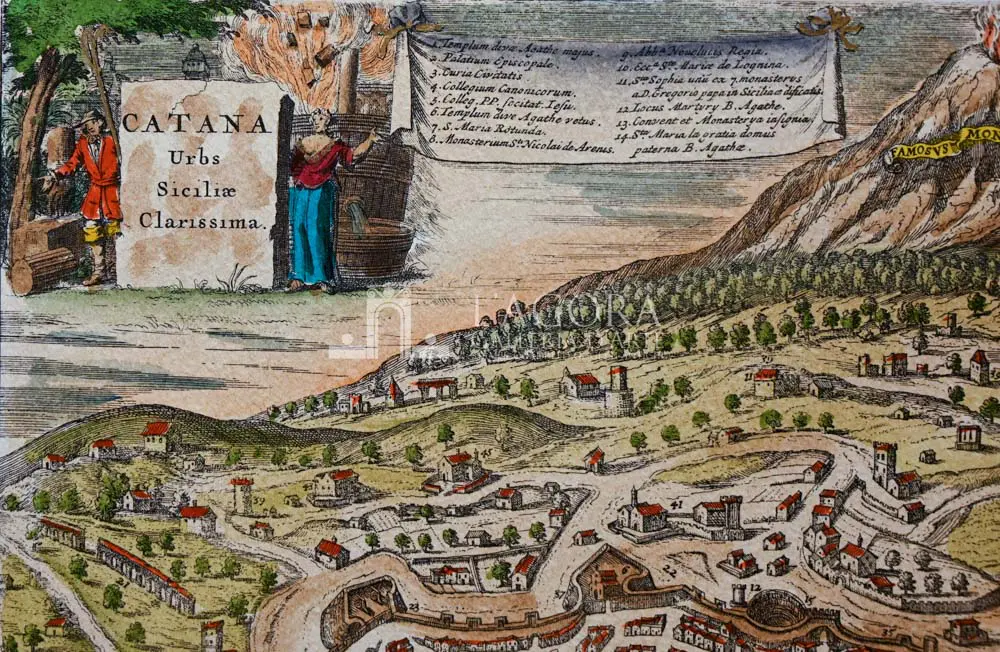 CATANA
Urbs
Siciliæ
Clarissima.
1. Templum divæ Agathe majus.
2. Palatium Episcopale.
3. Curia Civitatis
4. Collegium Canonicorum.
5. Colleg. PP. societat. Iesu.
6. Templum dive Agathe vetus.
7. S. Maria Rotunda.
8. Monasterium Sti. Nicolai de Arenis.
9. Abba. Novelucis Regia.
10. Ecca. Stæ. Mariæ de Lognina.
11. Sta. Sophia unū ex 7. monasterys
a D. Gregorio papa in Sicilia ædificatis.
12. Locus Martyry B. Agathe.
13. Convent et Monasterya insignia
14. Sta. Maria la gratia domus
paterna B. Agathæ.
FAMOSUS MON
L'AGORA
GALLERIE D'ARTE
39
41
23
12
35